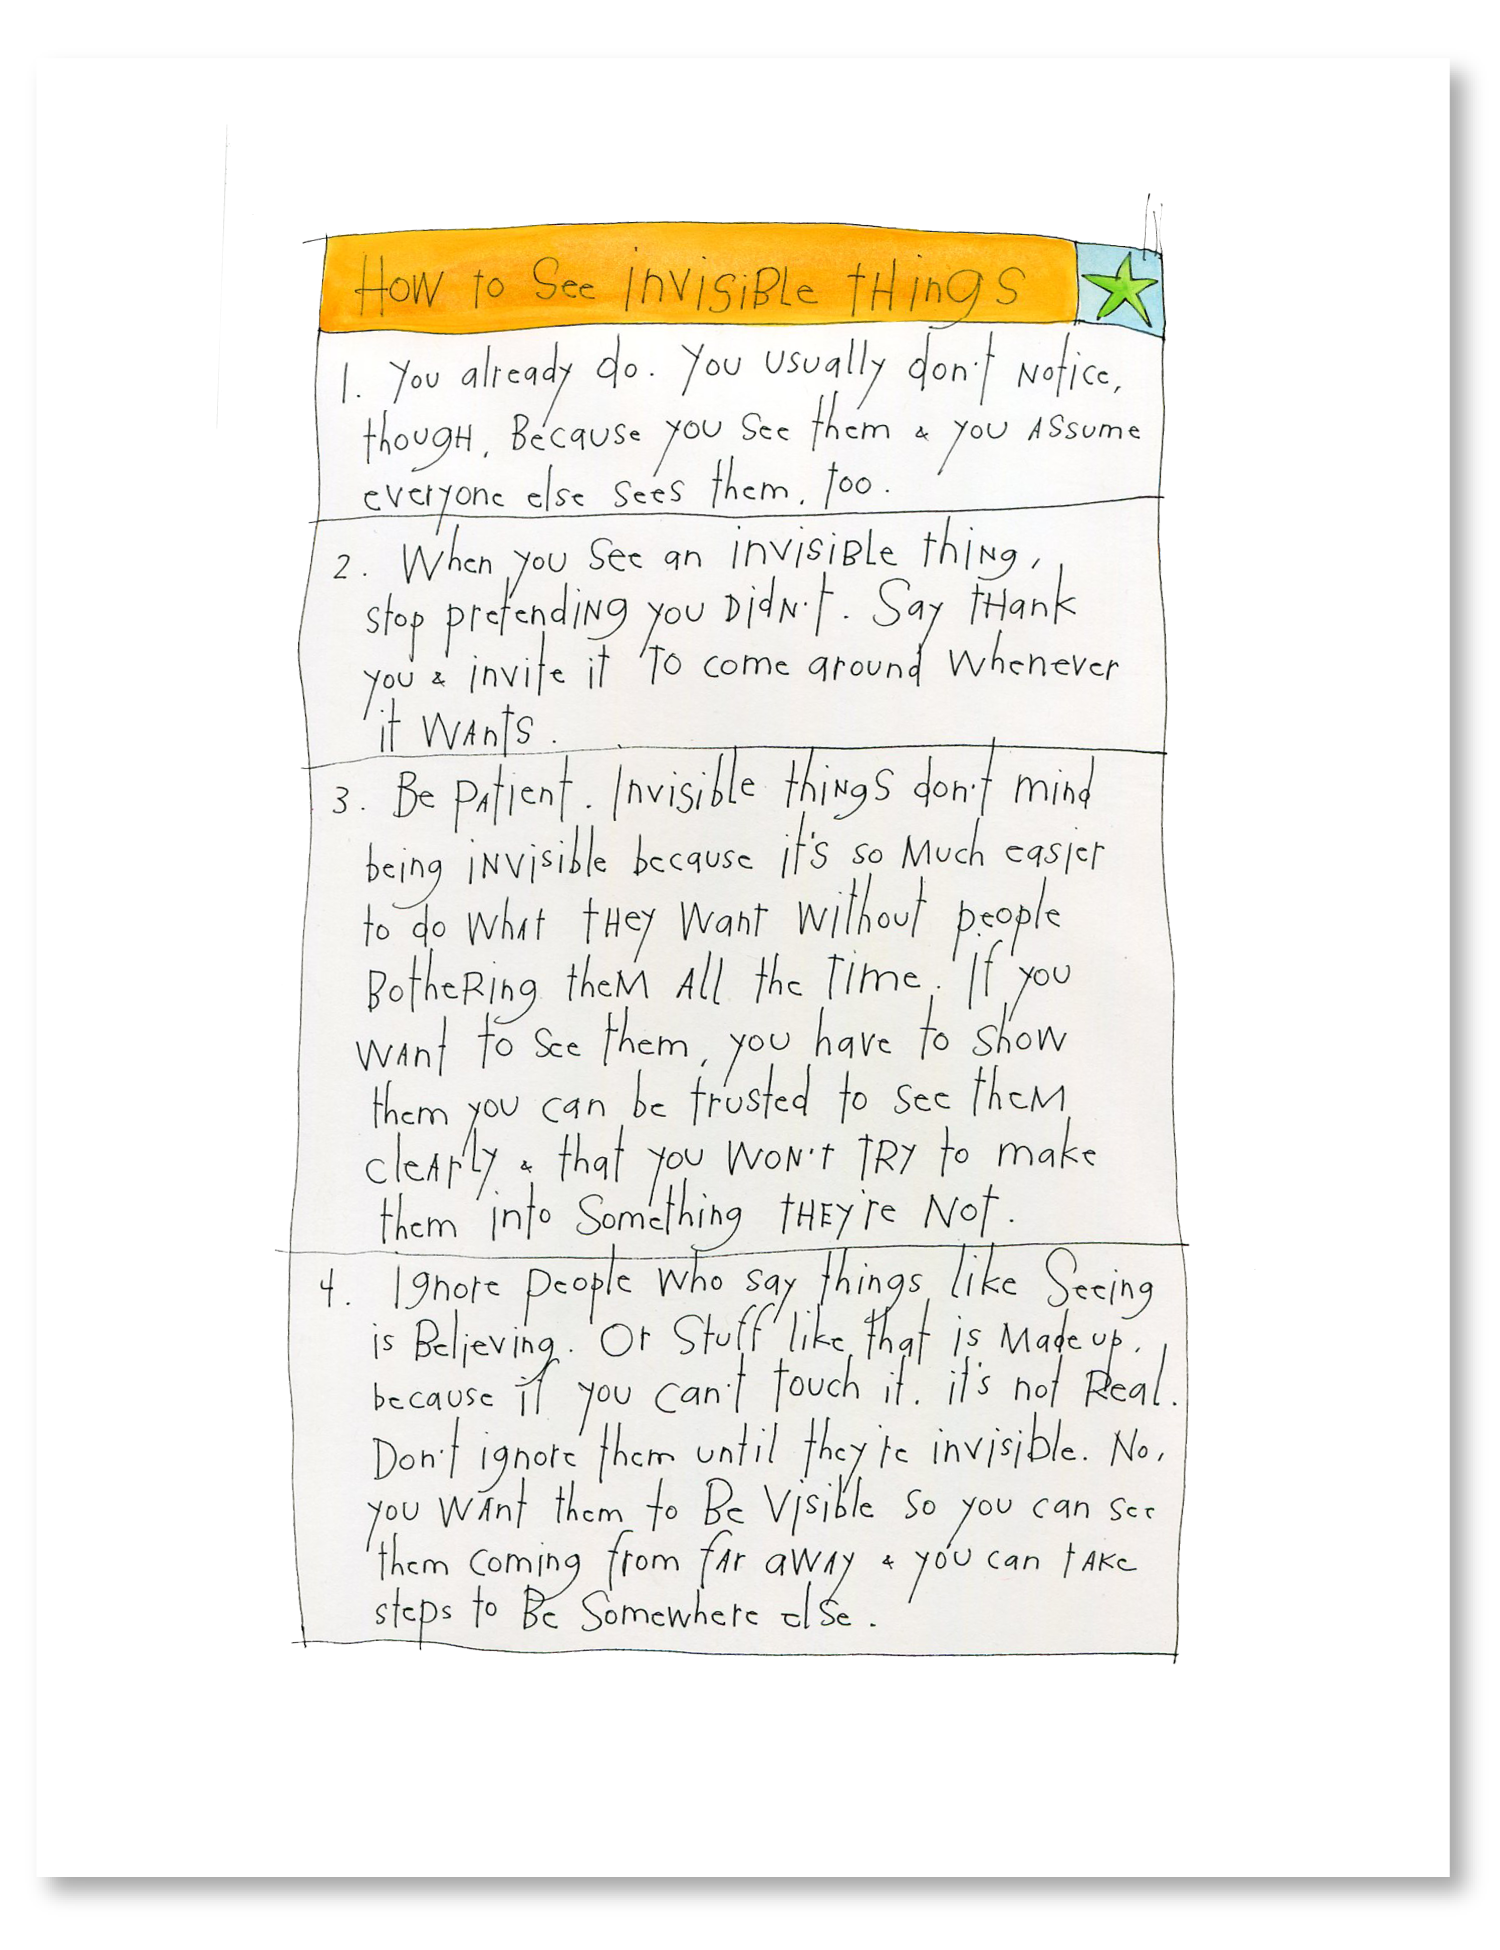 How to See invisible things
1. You already do. You usually don't notice,
though, Because you see them & you assume
everyone else sees them, too.
2. When you see an invisible thing,
stop pretending you didn't. Say thank
you & invite it to come around whenever
it wants.
3. Be patient. Invisible things don't mind
being invisible because it's so much easier
to do what they want without people
Bothering them all the time. If you
want to see them, you have to show
them you can be trusted to see them
clearly & that you won't try to make
them into something they're not.
4. Ignore people who say things like Seeing
is Believing. Or Stuff like that is Made up,
because if you can't touch it, it's not Real.
Don't ignore them until they're invisible. No,
you want them to Be Visible so you can see
them coming from far away & you can take
steps to Be Somewhere else.